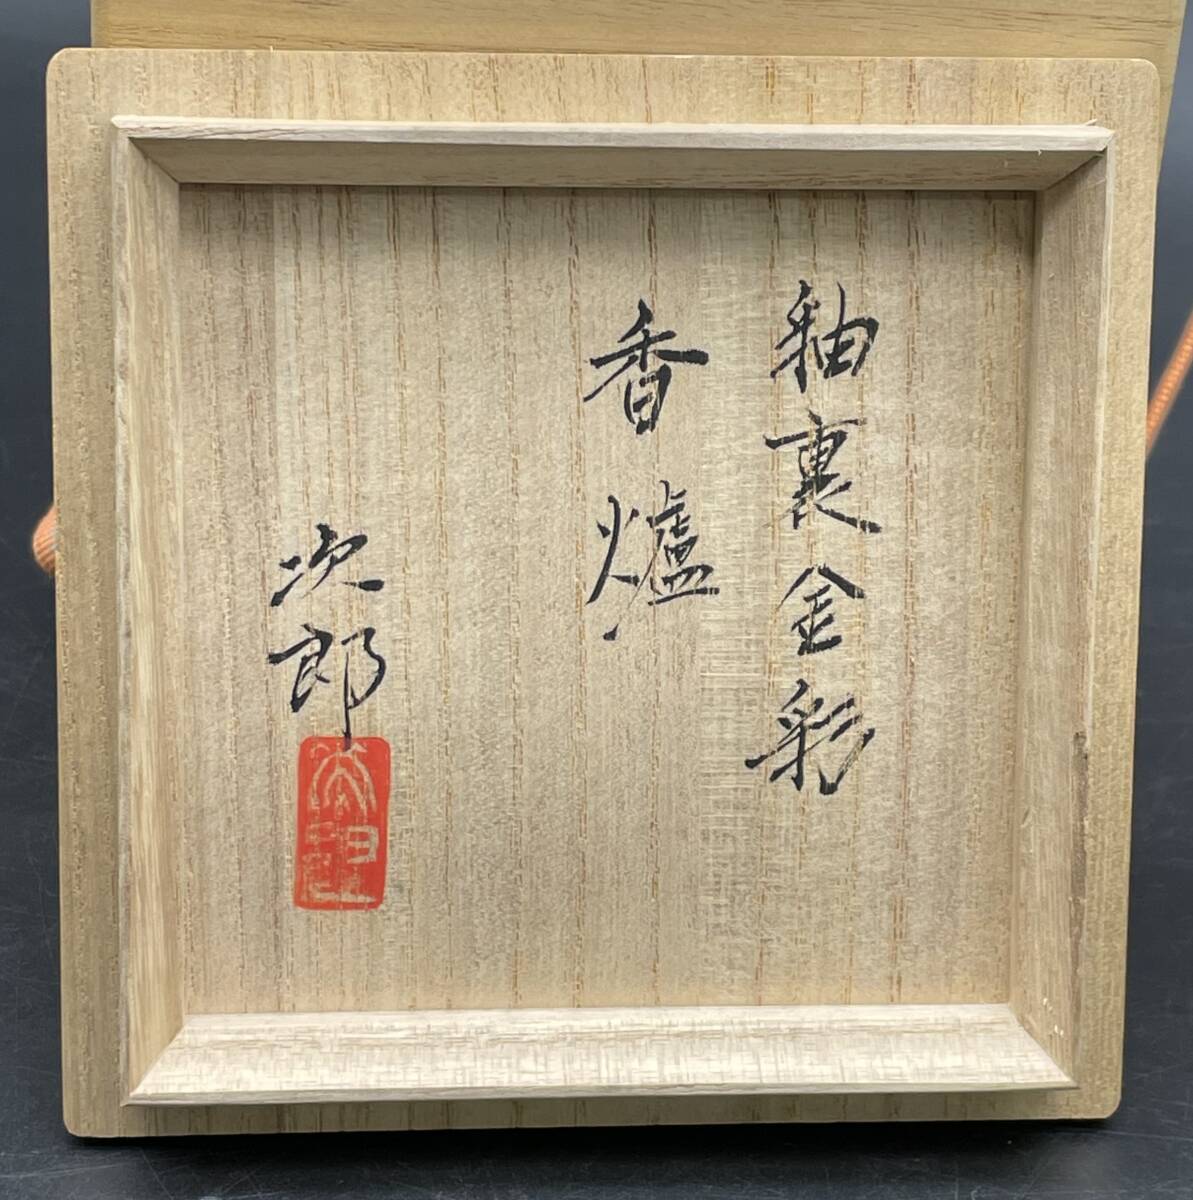 釉裏金彩
香爐
次郎